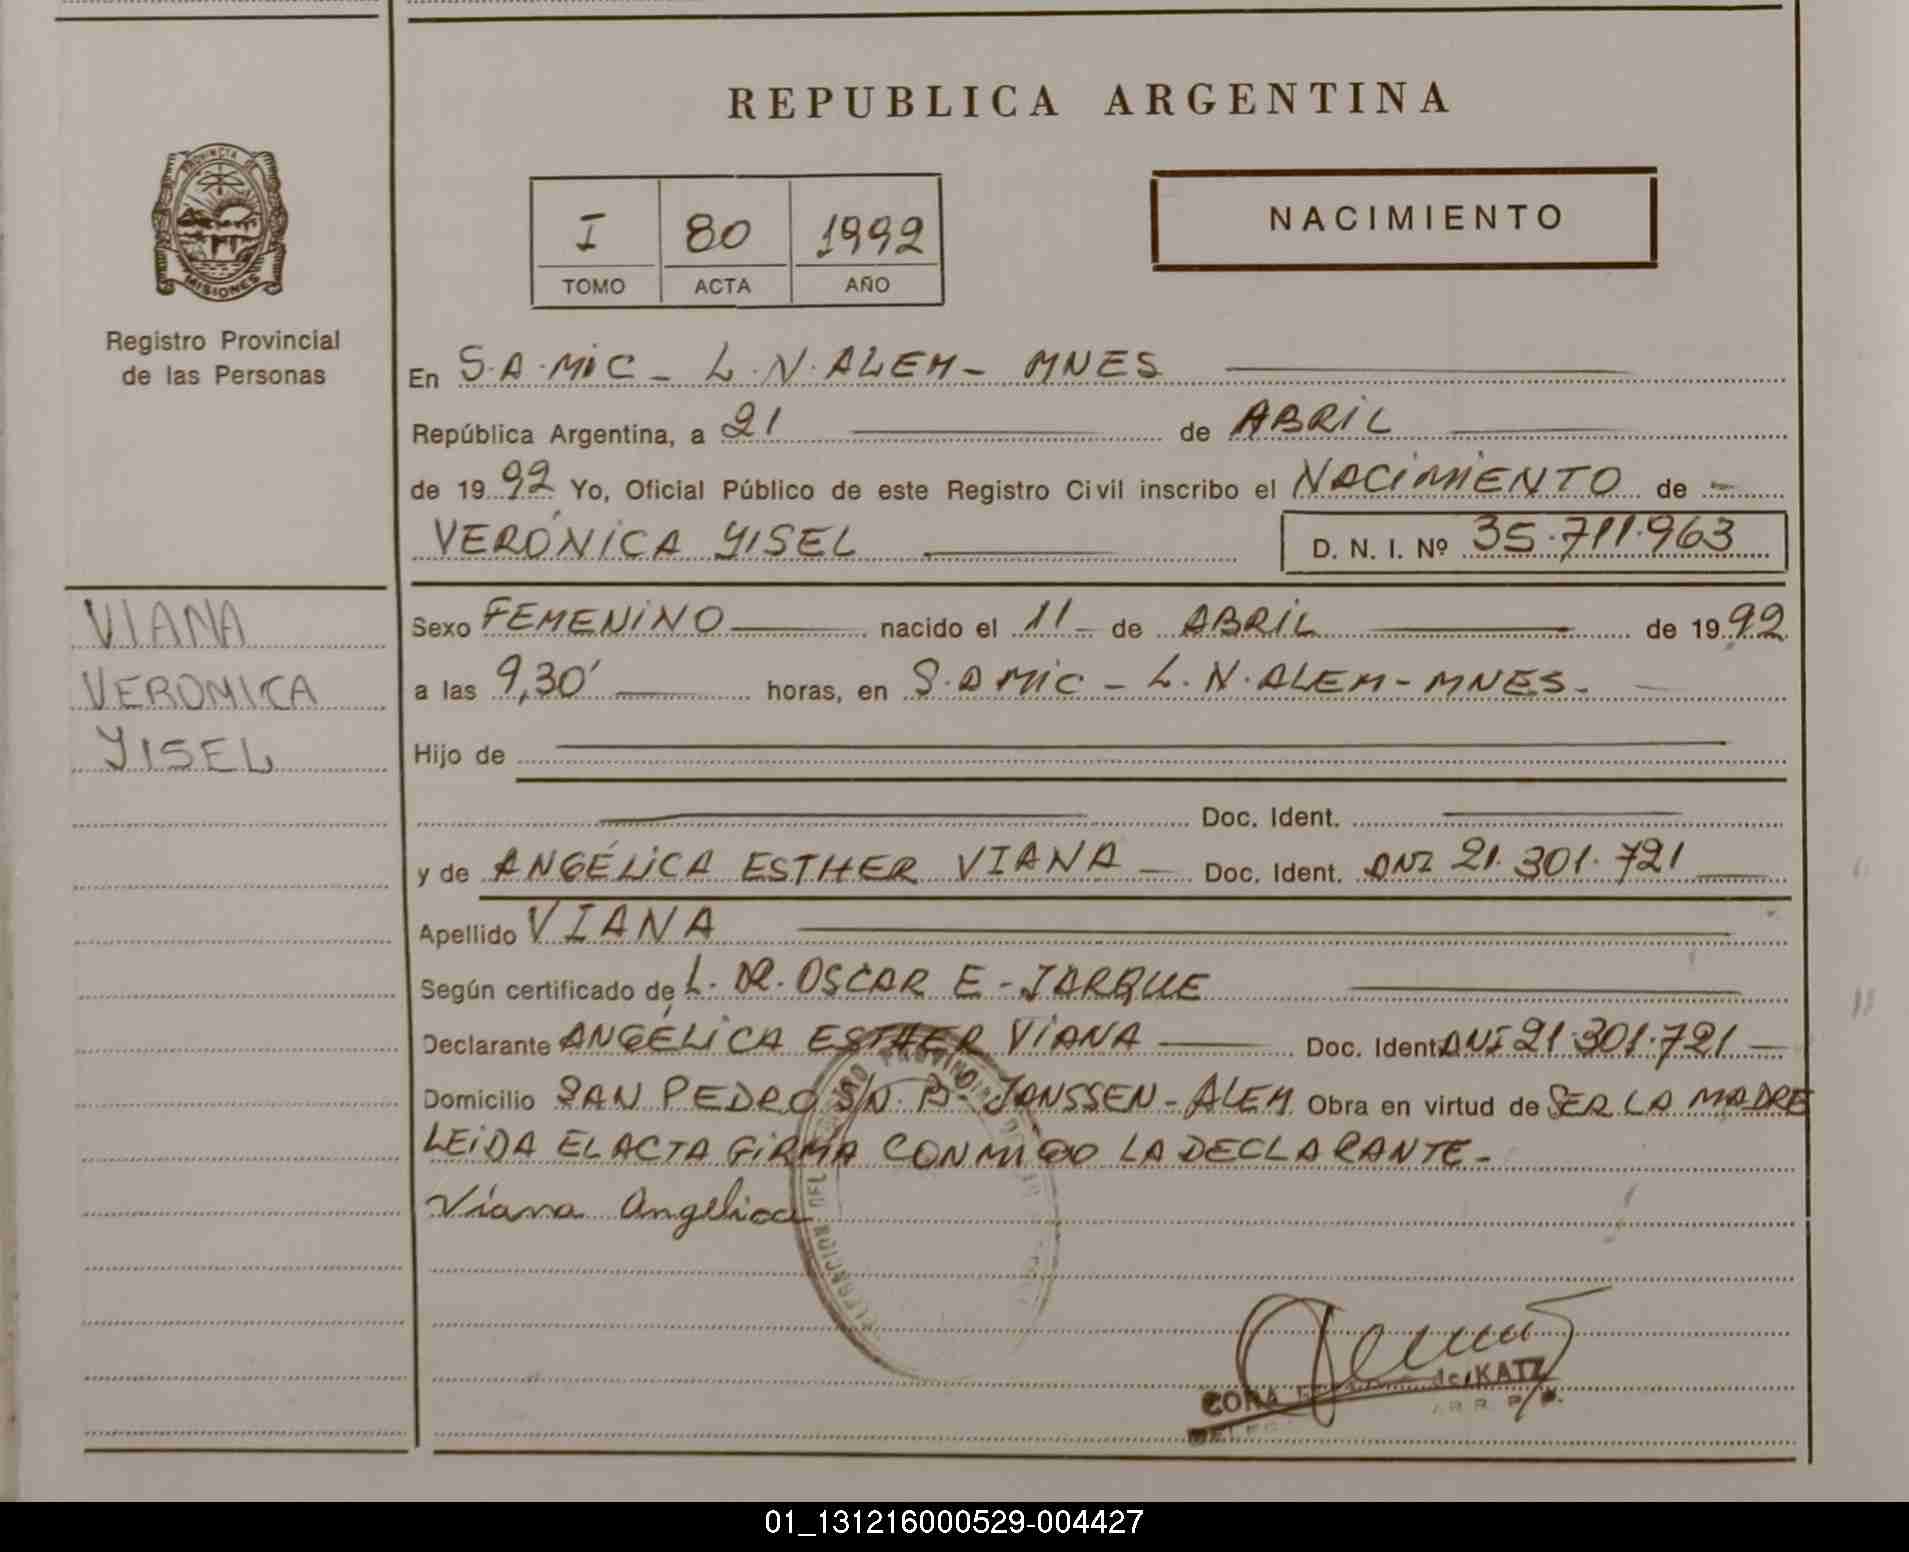 REPUBLICA ARGENTINA
PROVINCIA DE
MISIONES
Registro Provincial
de las Personas
I 80 1992
TOMO ACTA AÑO
NACIMIENTO
En S.A.MIC - L.N.ALEM - MNES
República Argentina, a 21 de ABRIL
de 1992 Yo, Oficial Público de este Registro Civil inscribo el NACIMIENTO de -
VERÓNICA YISEL D. N. I. Nº 35.711.963
VIANA
VERONICA
YISEL
Sexo FEMENINO nacido el 11 - de ABRIL de 1992
a las 9,30' horas, en S.A MIC - L.N.ALEM - MNES -
Hijo de
Doc. Ident.
y de ANGÉLICA ESTHER VIANA - Doc. Ident. DNI 21.301.721
Apellido VIANA
Según certificado de L. DR. OSCAR E - JARQUE
Declarante ANGÉLICA ESTHER VIANA Doc. Ident DNI 21.301.721 -
Domicilio SAN PEDRO S/N. B. JANSSEN - ALEM Obra en virtud de SER LA MADRE
LEIDA EL ACTA FIRMA CONMIGO LA DECLARANTE -
Viana Angelica
CORA de KATZ
01_131216000529-004427